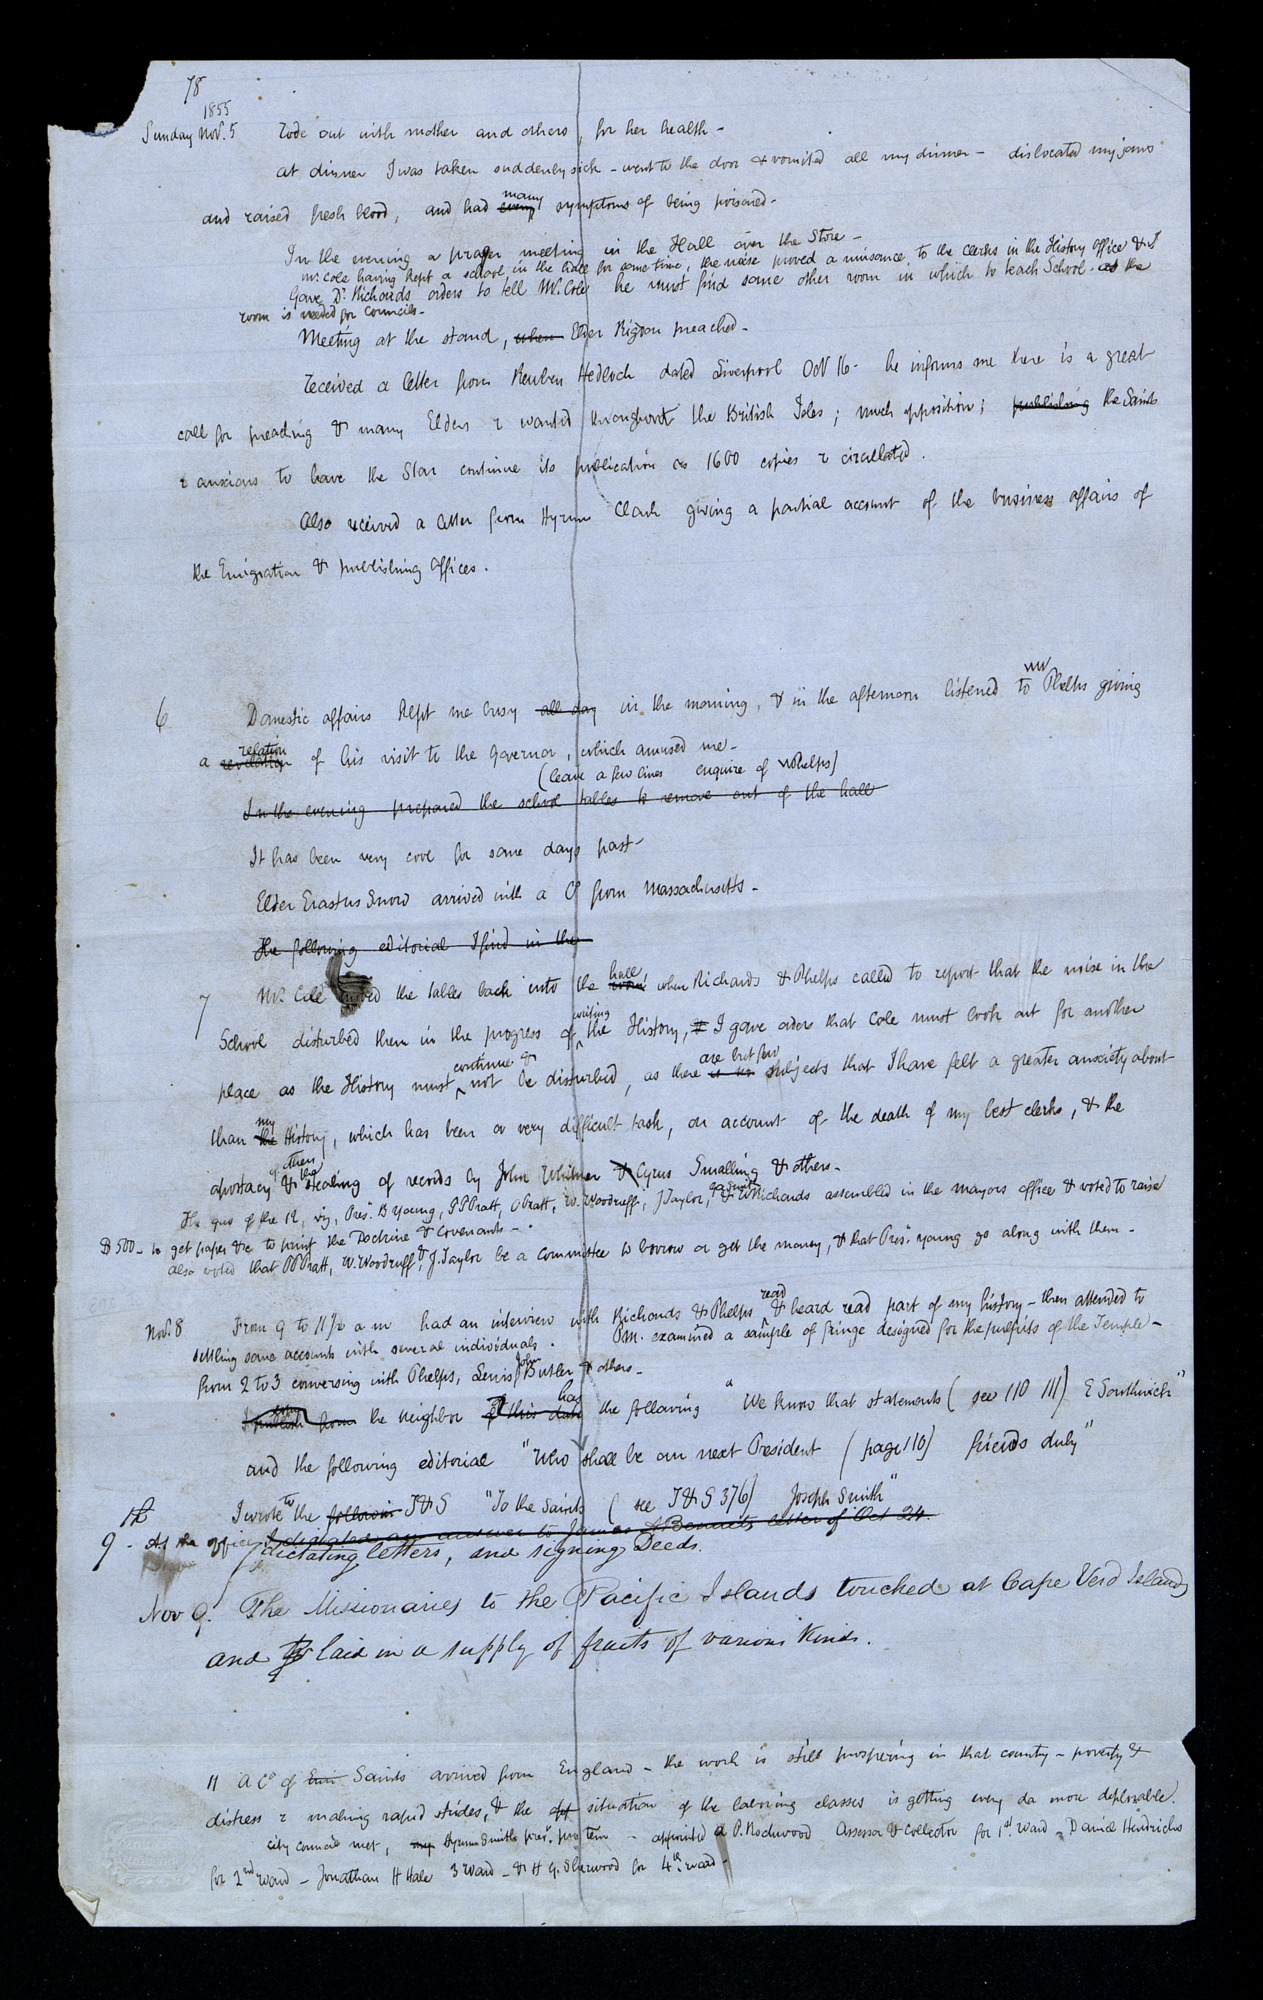 78
1855
Sunday Nov. 5 rode out with mother and others, for her health -
at dinner I was taken suddenly sick - went to the door & vomited all my dinner - dislocated my jaw
and raised fresh blood, and had every many symptoms of being poisoned -
In the evening a prayer meeting in the Hall over the Store -
Mr. Cole having kept a school in the hall for some time, the noise proved a nuisance to the clerks in the History office & I
Gave Dr. Richards orders to tell Mr. Cole he must find some other room in which to teach School. as the
room is needed for councils -
Meeting at the stand, when Elder Rigdon preached -
received a letter from Reuben Hedlock dated Liverpool Oct 16 - he informs me there is a great
call for preaching & many Elders r wanted throughout the British Isles; much opposition; publishing the Saints
r anxious to have the Star continue its publication as 1600 copies r circulated.
Also received a letter from Hyrum Clark giving a partial account of the business affairs of
the Emigration & publishing offices.
6 Domestic affairs kept me busy all day in the morning, & in the afternoon listened to WW Phelps giving
a revelation relation of his visit to the Governor, which amused me -
(leave a few lines enquire of WPhelps)
In the evening prepared the school tables to remove out of the hall
It has been very cool for some days past -
Elder Erastus Snow arrived with a Co from Massachusetts -
The following editorial I find in the
7 Mr. Cole moved the tables back into the room hall when Richards & Phelps called to report that the noise in the
School disturbed them in the progress of writing the History, & I gave orders that Cole must look out for another
place as the History must continue & not be disturbed, as there is no are but few subjects that I have felt a greater anxiety about
than the my History, which has been a very difficult task, on account of the death of my best clerks, & the
apostacy of others & the stealing of records by John Whitmer & Cyrus Smalling & others -
The quo of the 12, viz, Pres. B Young, P P Pratt, O Pratt, W. Woodruff, J Taylor, G A Smith & W Richards assembled in the mayors office & voted to raise
$500 - to get paper &c to print the Doctrine & Covenants -
also voted that P P Pratt, W. Woodruff, & J. Taylor be a committee to borrow or get the money, & that Pres. Young go along with them -
Nov. 8 From 9 to 11 1/2 a m had an interview with Richards & Phelps read & heard read part of my history - then attended to
settling some accounts with several individuals. P.M. examined a sample of fringe designed for the pulpits of the Temple -
from 2 to 3 conversing with Phelps, Lewis, John Butler & others -
I publish from the Neighbor of this date has the following "We know that statements (see 110 111) E Southwick"
and the following editorial "Who shall be our next President (page 110) friends duly"
I wrote to the followin T&S "To the Saints (see T&S 376) Joseph Smith"
9 - At the office I dictated an answer to James A Bennets letter of Oct 24.
dictating letters, and signing Deeds.
Nov 9. The Missionaries to the Pacific Islands touched at Cape Verd Islands
and laid in a supply of fruits of various kinds.
11 A Co of Emi Saints arrived from England - the work is still prospering in that county - poverty &
distress r making rapid strides, & the situation of the laboring classes is getting every da more deplorable.
City council met, Hyrum Smith prest. pro tem - appointed A P. Rockwood Assessor & Collector for 1st. ward - Daniel Hendricks
for 2nd ward - Jonathan H Hale 3 ward - & H G. Sherwood for 4th. ward -